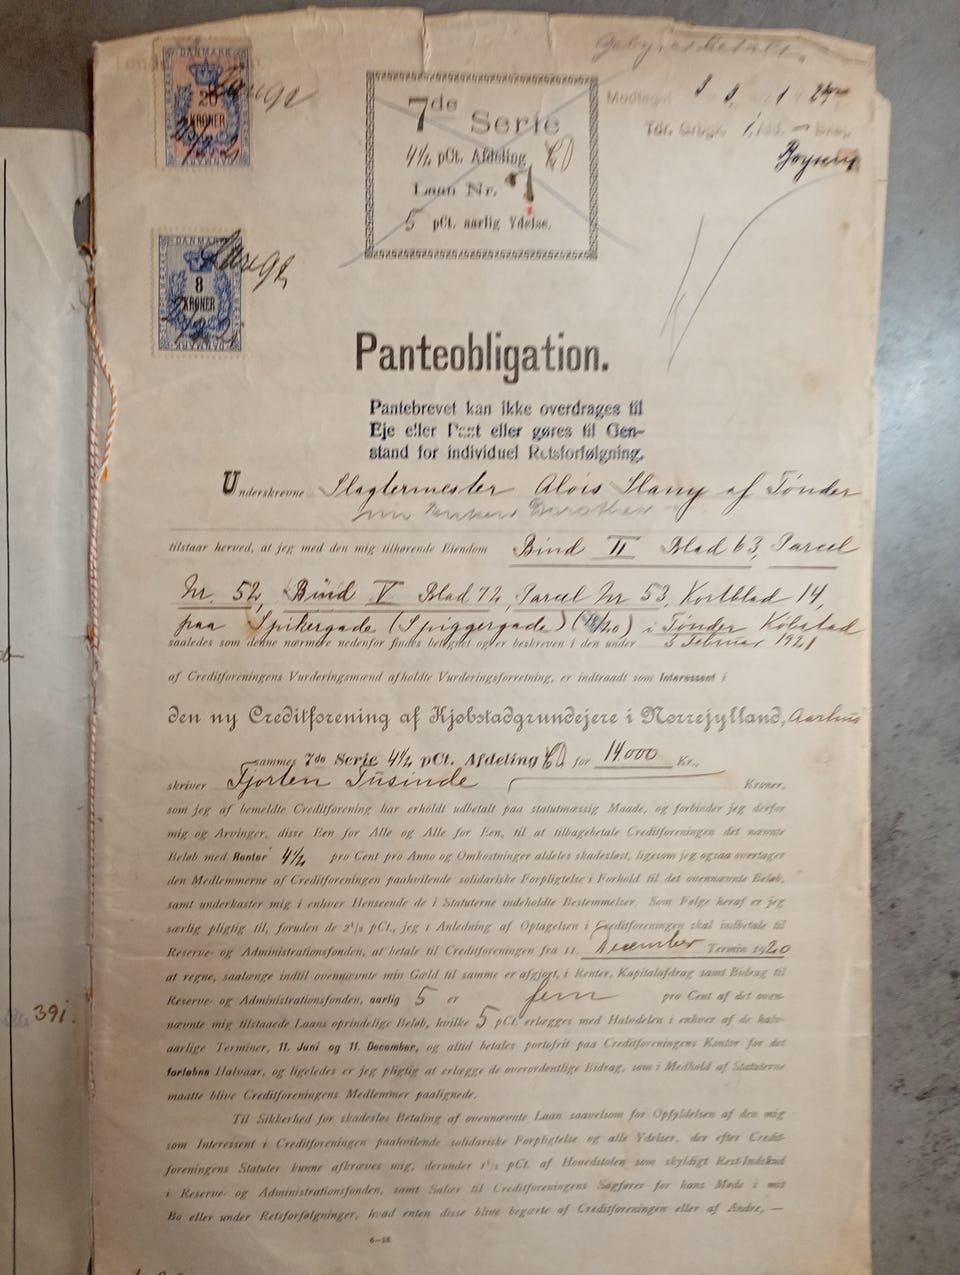 Gebyret betalt.
DANMARK
20
KRONER
DANMARK
7de Serie
4½ pCt. Afdeling CD
Laan Nr. 1
5 pCt. aarlig Ydelse.
Modtaget
Tdr. Grbgk.
DANMARK
8
KRONER
DANMARK
Panteobligation.
Pantebrevet kan ikke overdrages til
Eje eller Pant eller gøres til Gen-
stand for individuel Retsforfølgning.
Underskrevne Slagtermester Alois Slany af Tønder
tilstaar herved, at jeg med den mig tilhørende Eiendom Bind II Blad 63, Parcel
Nr. 52, Bind V Blad 72, Parcel Nr 53, Kortblad 14,
paa Spikergade (Spiggergade) (18/20) i Tønder Købstad
saaledes som denne nærmere nedenfor findes betegnet og er beskreven i den under 5 Februar 1921
af Creditforeningens Vurderingsmænd afholdte Vurderingsforretning, er indtraadt som Interessent i
den ny Creditforening af Kjøbstadgrundejere i Nørrejylland, Aarhus
sammes 7de Serie 4½ pCt. Afdeling CD for 14.000 Kr.,
skriver Fjorten Tusinde Kroner,
som jeg af bemeldte Creditforening har erholdt udbetalt paa statutmæssig Maade, og forbinder jeg derfor
mig og Arvinger, disse Een for Alle og Alle for Een, til at tilbagebetale Creditforeningen det nævnte
Beløb med Renter 4½ pro Cent pro Anno og Omkostninger aldeles skadesløst, ligesom jeg ogsaa overtager
den Medlemmerne af Creditforeningen paahvilende solidariske Forpligtelse i Forhold til det ovennævnte Beløb,
samt underkaster mig i enhver Henseende de i Statuterne indeholdte Bestemmelser. Som Følge heraf er jeg
særlig pligtig til, foruden de 2½ pCt., jeg i Anledning af Optagelsen i Creditforeningen skal indbetale til
Reserve- og Administrationsfonden, at betale til Creditforeningen fra 11. December Termin 1920
at regne, saalænge indtil ovennævnte min Gæld til samme er afgjort, i Renter, Kapitalafdrag samt Bidrag til
Reserve- og Administrationsfonden, aarlig 5 er fem pro Cent af det oven-
nævnte mig tilstaaede Laans oprindelige Beløb, hvilke 5 pCt. erlægges med Halvdelen i enhver af de halv-
aarlige Terminer, 11. Juni og 11. December, og altid betales portofrit paa Creditforeningens Kontor for det
forløbne Halvaar, og ligeledes er jeg pligtig at erlægge de overordentlige Bidrag, som i Medhold af Statuterne
maatte blive Creditforeningens Medlemmer paalignede.
Til Sikkerhed for skadesløs Betaling af ovennævnte Laan saavelsom for Opfyldelsen af den mig
som Interessent i Creditforeningen paahvilende solidariske Forpligtelse og alle Ydelser, der efter Credit-
foreningens Statuter kunne afkræves mig, derunder 1½ pCt. af Hovedstolen som skyldigt Rest-Indskud
i Reserve- og Administrationsfonden, samt Salær til Creditforeningens Sagfører for hans Møde i mit
Bo eller under Retsforfølgninger, hvad enten disse blive begærte af Creditforeningen eller af Andre, —
6—18
39i.